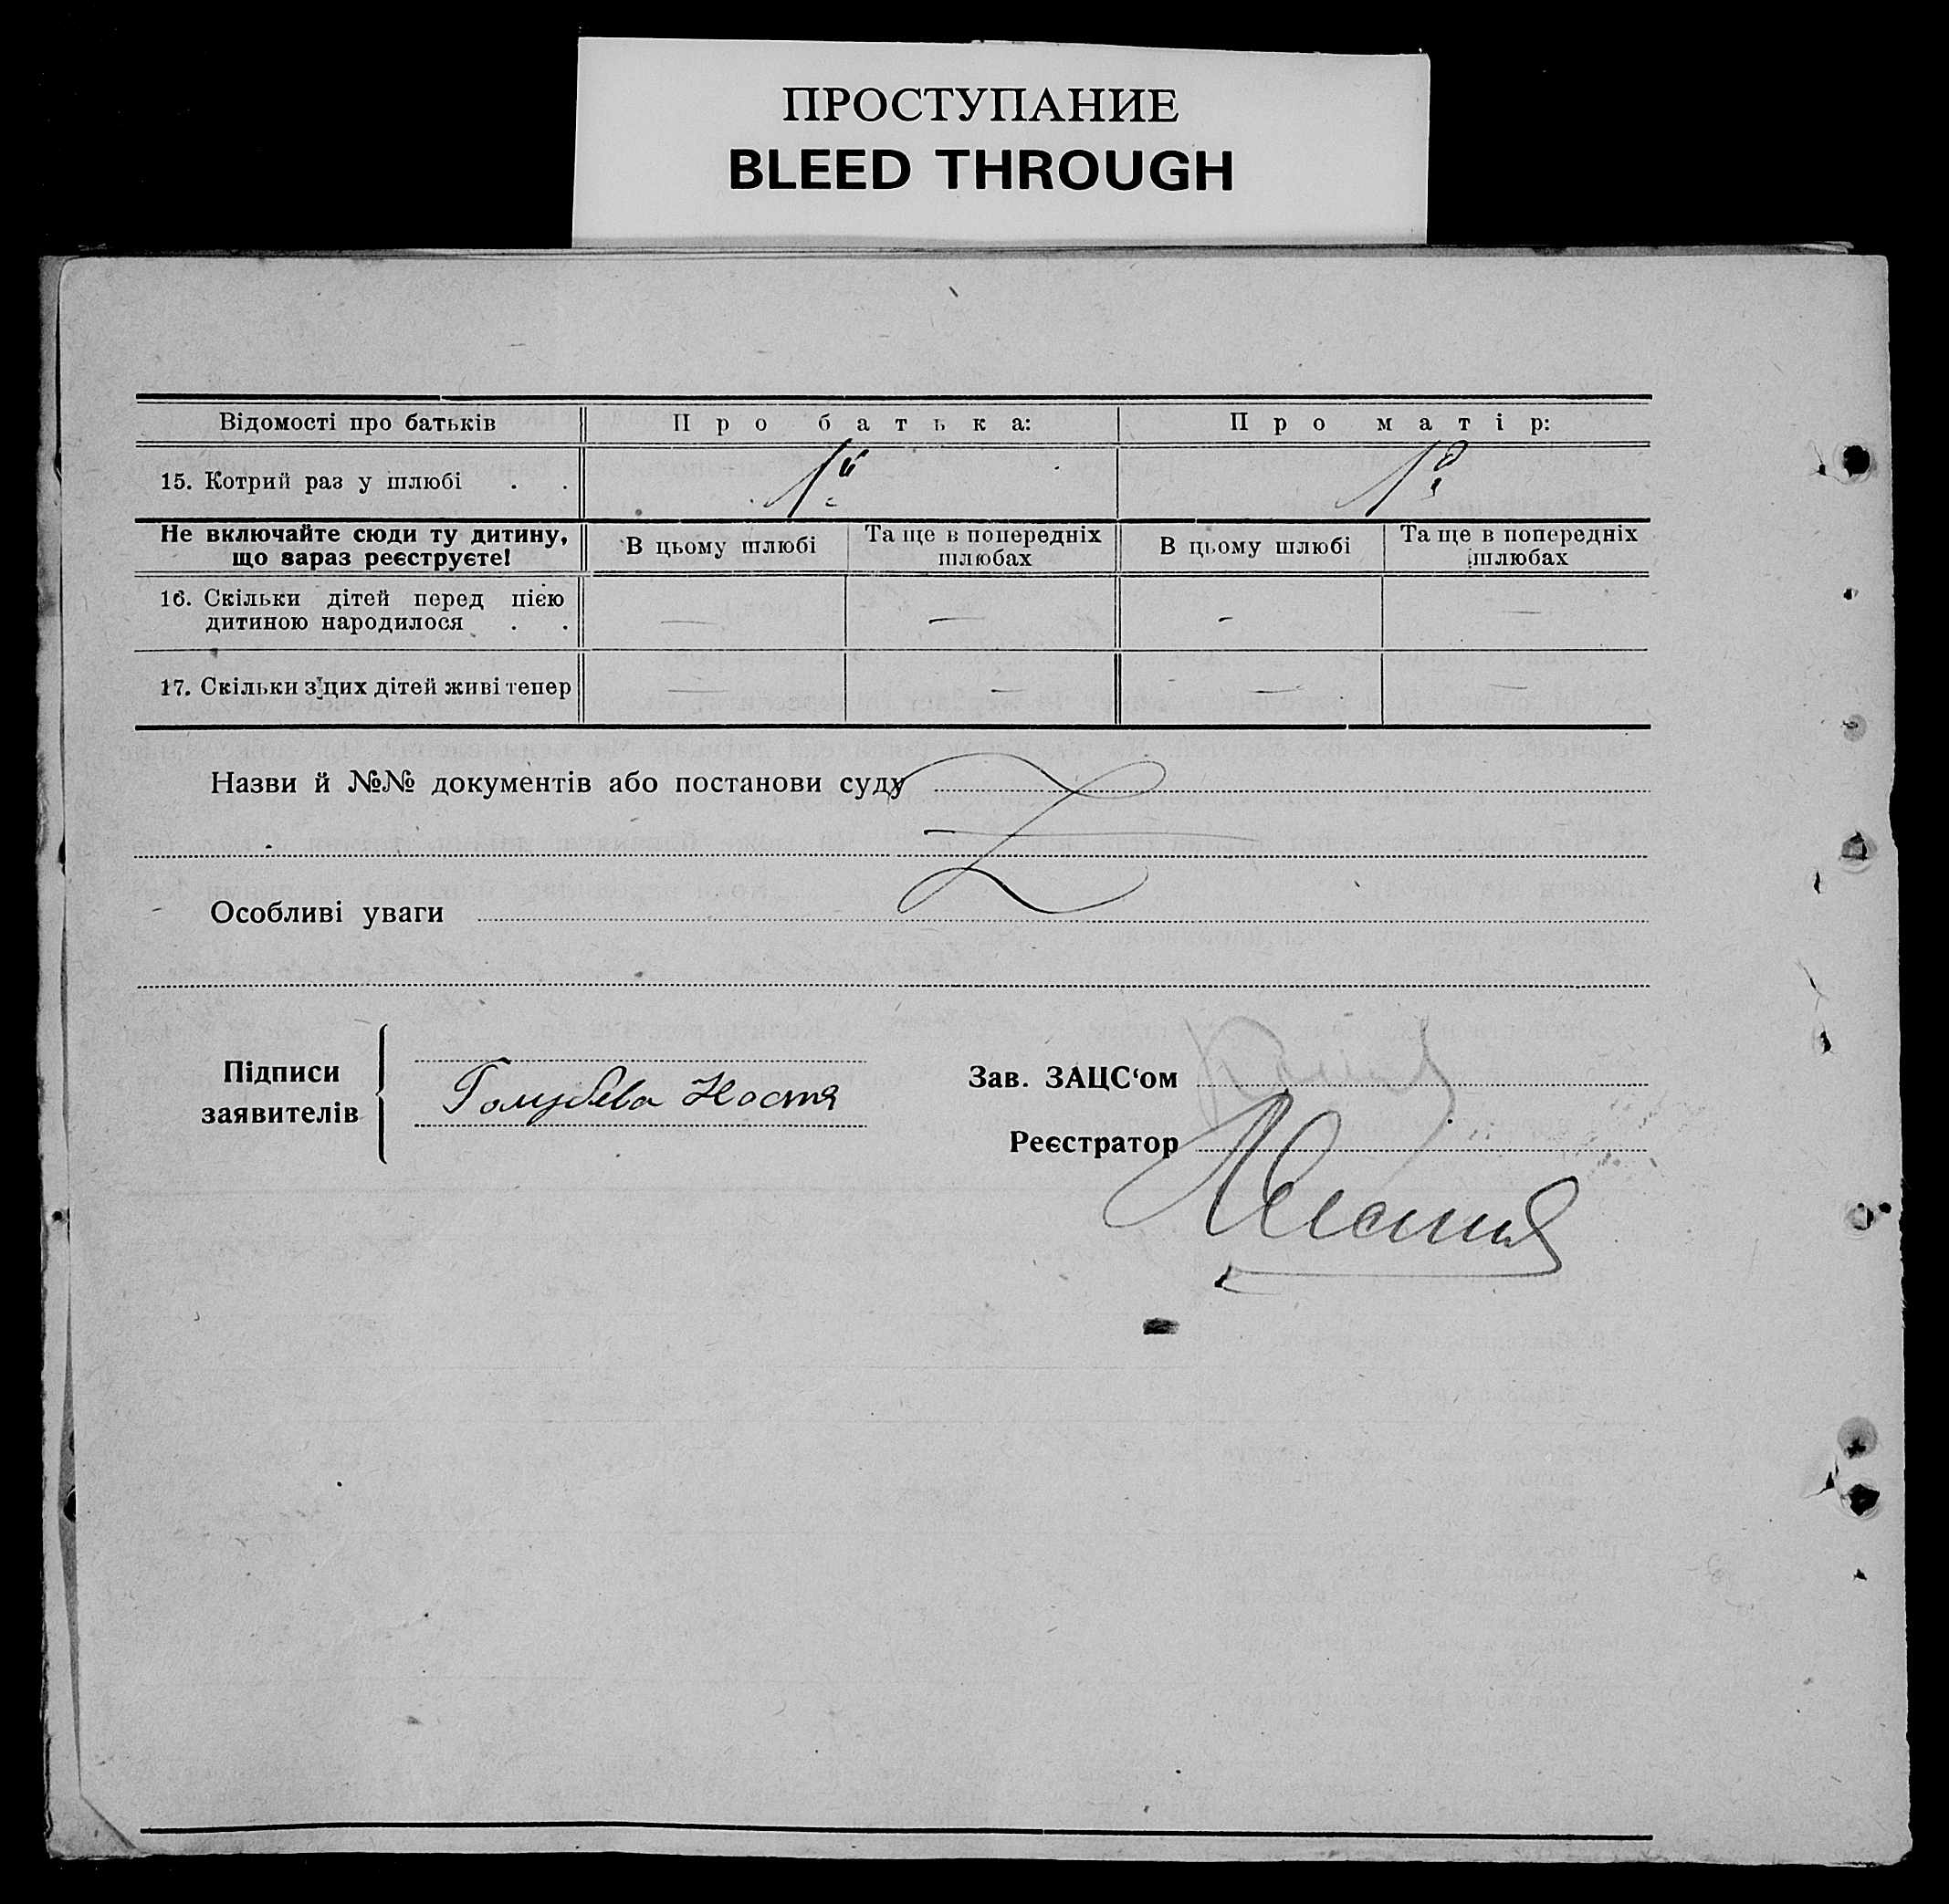 ПРОСТУПАНИЕ
BLEED THROUGH
Відомості про батьків Про батька: Про матір:
15. Котрий раз у шлюбі . . 1й 1й
Не включайте сюди ту дитину, що зараз реєструєте! В цьому шлюбі Та ще в попередніх шлюбах В цьому шлюбі Та ще в попередніх шлюбах
16. Скільки дітей перед цією
дитиною народилося . . — — - —
17. Скільки з цих дітей живі тепер — — — —
Назви й №№ документів або постанови суду
Особливі уваги
Підписи
заявителів
Голубева Настя
Зав. ЗАЦС‘ом
Реєстратор